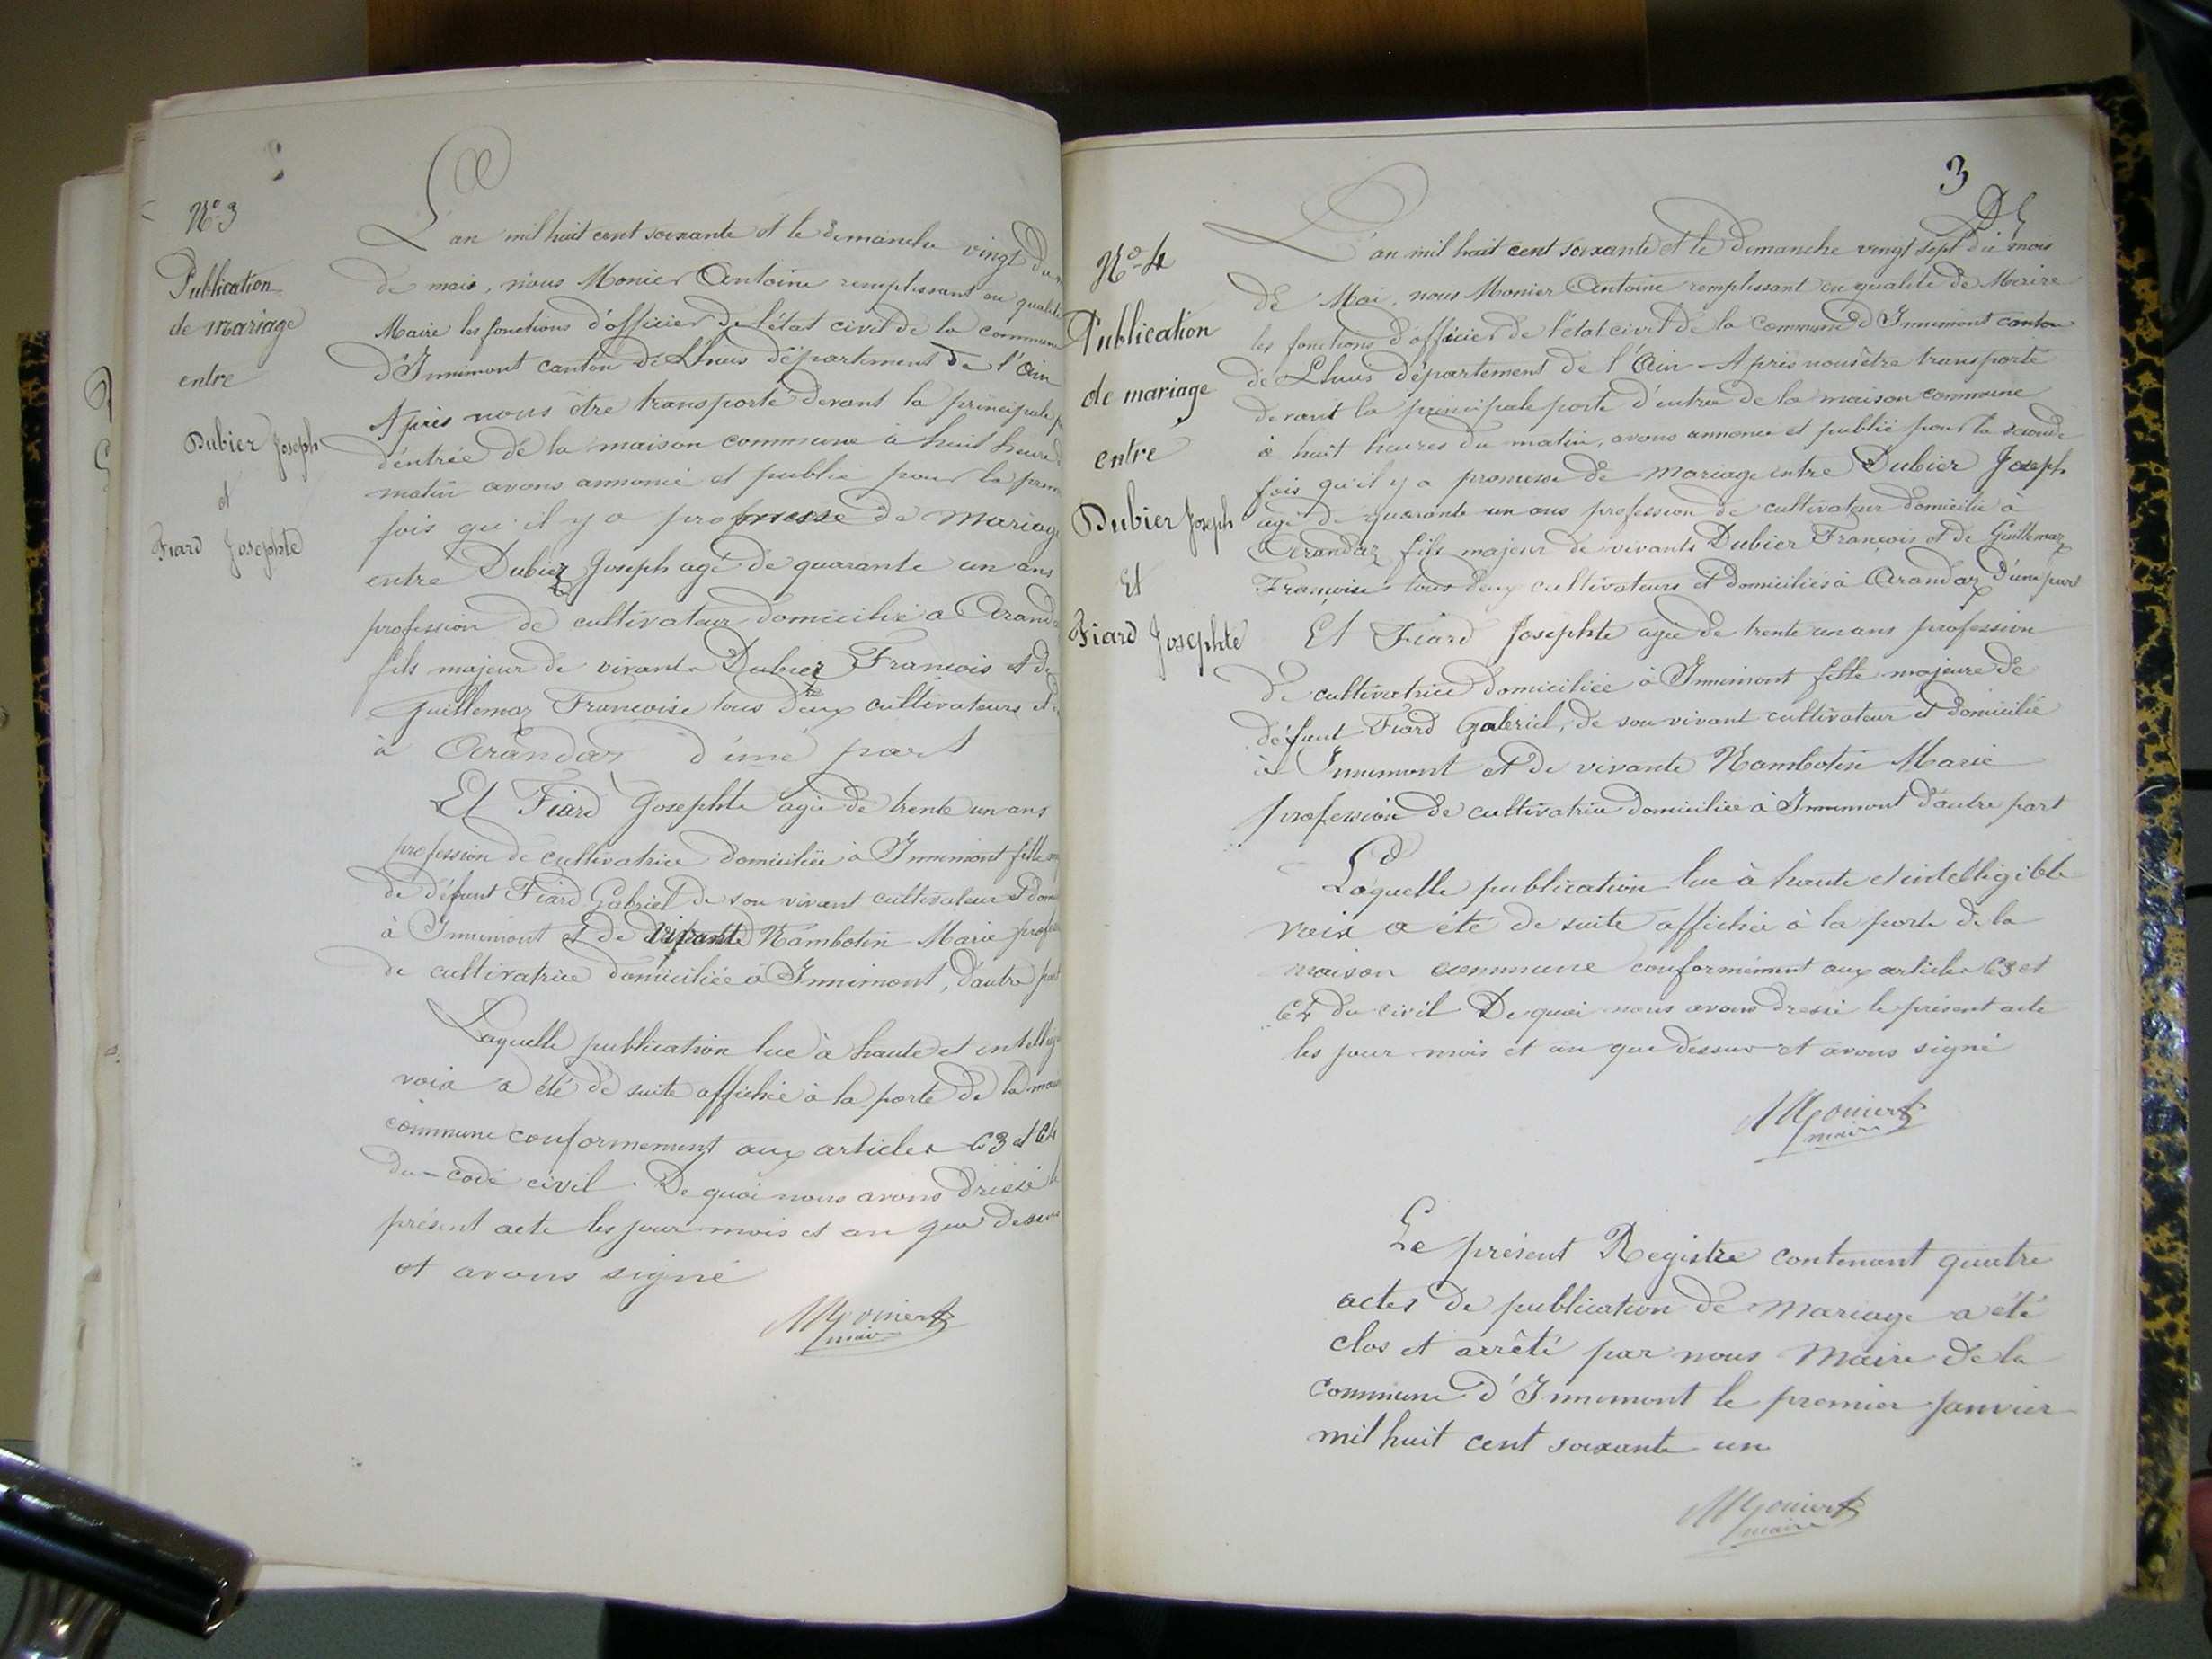 N° 3
Publication
de mariage
entre
Dubier Joseph
et
Fiard Josephte
L'an mil huit cent soixante et le dimanche vingt du
de mai, nous Monier Antoine remplissant en qualité
Maire les fonctions d'officier de l'état civil de la commune
d'Innimont canton de Lhuis département de l'Ain
Après nous être transporté devant la principale
d'entrée de la maison commune à huit heures
matin avons annoncé et publié pour la prem
fois qu'il y a promesse de mariage
entre Dubier Joseph agé de quarante un ans
profession de cultivateur domicilié à Aranda
fils majeur de vivants Dubier François et de
Guillemaz Francoise tous deux cultivateurs et
à Arandaz d'une part
Et Fiard Josephte agée de trente un ans
profession de cultivatrice domiciliée à Innimont fille
de défunt Fiard Gabriel de son vivant cultivateur et dom
à Innimont et de vivante Nambotin Marie profes
de cultivatrice domiciliée à Innimont, d'autre part
Laquelle publication lue à haute et intellig
voix a été de suite affichée à la porte de la mais
commune conformement aux articles 63 et 64
du code civil. De quoi nous avons dressé le
présent acte les jour mois et an que dessus
et avons signé
Monier
maire
3
N° 4
Publication
de mariage
entre
Dubier Joseph
Et
Fiard Josephte
L'an mil huit cent soixante et le dimanche vingt sept du mois
de Mai, nous Monier Antoine remplissant en qualité de Maire
les fonctions d'officier de l'état civil de la Commune d'Innimont canton
de Lhuis département de l'Ain - Après nous être transporté
devant la principale porte d'entrée de la maison commune
à huit heures du matin, avons annoncé et publié pour la seconde
fois qu'il y a promesse de mariage entre Dubier Joseph
agé de quarante un ans profession de cultivateur domicilié à
Arandaz fils majeur de vivants Dubier François et de Guillemaz
Françoise tous deux cultivateurs et domiciliés à Arandaz D'une part
Et Fiard Josephte agée de trente un ans profession
de cultivatrice domiciliée à Innimont fille majeure de
défunt Fiard Gabriel, de son vivant cultivateur et domicilié
à Innimont et de vivante Nambotin Marie
profession de cultivatrice domiciliée à Innimont d'autre part
Laquelle publication lue à haute et intelligible
voix a été de suite affichée à la porte de la
maison commune conformément aux articles 63 et
64 du civil De quoi nous avons dressé le présent acte
les jour mois et an que dessus et avons signé
Monier
maire
Le présent Registre contenant quatre
actes de publication de mariage a été
clos et arrêté par nous Maire de la
commune d'Innimont le premier janvier
mil huit cent soixante un
Monier
maire